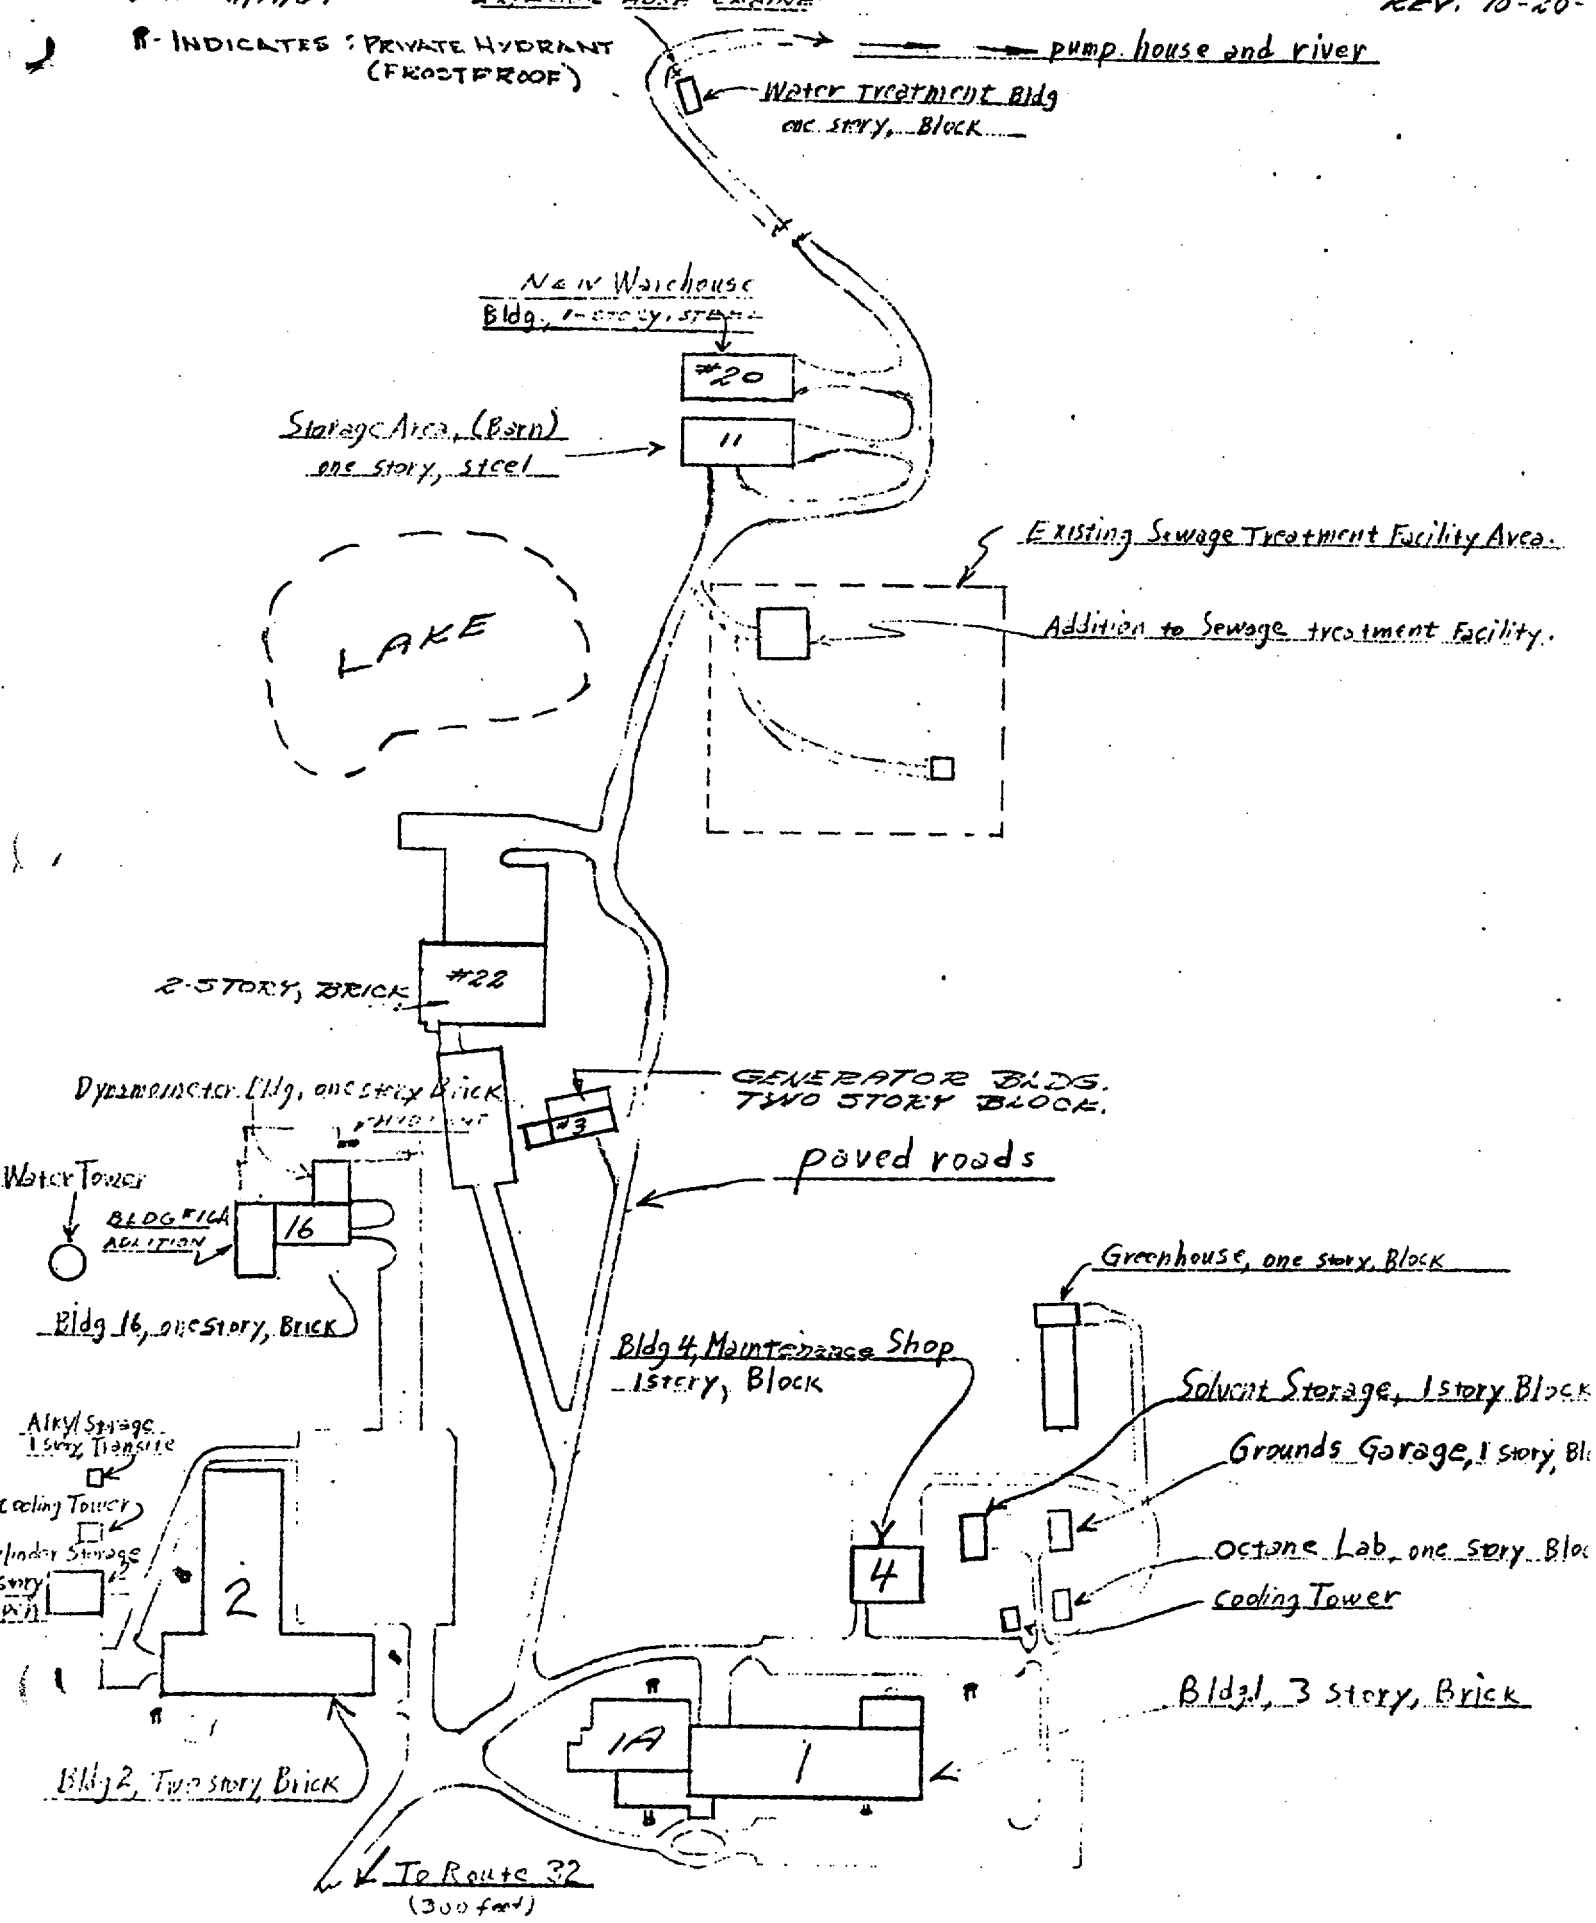 REV. 10-20-
- INDICATES : PRIVATE HYDRANT
(FROSTPROOF)
pump house and river
Water Treatment Bldg
one story, Block
New Warehouse
Bldg., 1-STORY, STEEL
#20
Storage Area, (Barn)
one story, steel
11
Existing Sewage Treatment Facility Area.
Addition to Sewage treatment Facility.
LAKE
#22
2-STORY, BRICK
Dynamometer Bldg, one story Brick
HYDRANT
GENERATOR BLDG.
TWO STORY BLOCK.
#3
paved roads
Water Tower
BLDG #16A
ADDITION
16
Bldg 16, one story, Brick
Greenhouse, one story, Block
Bldg 4, Maintenance Shop
1 story, Block
Solvent Storage, 1 story Block
Alkyl Storage
1 story, Transite
Grounds Garage, 1 story, Blo
cooling Tower
Storage
story
2
4
Octane Lab, one story Bloc
cooling Tower
2
Bldg.1, 3 story, Brick
1A
1
Bldg 2, Two story, Brick
To Route 32
(300 feet)